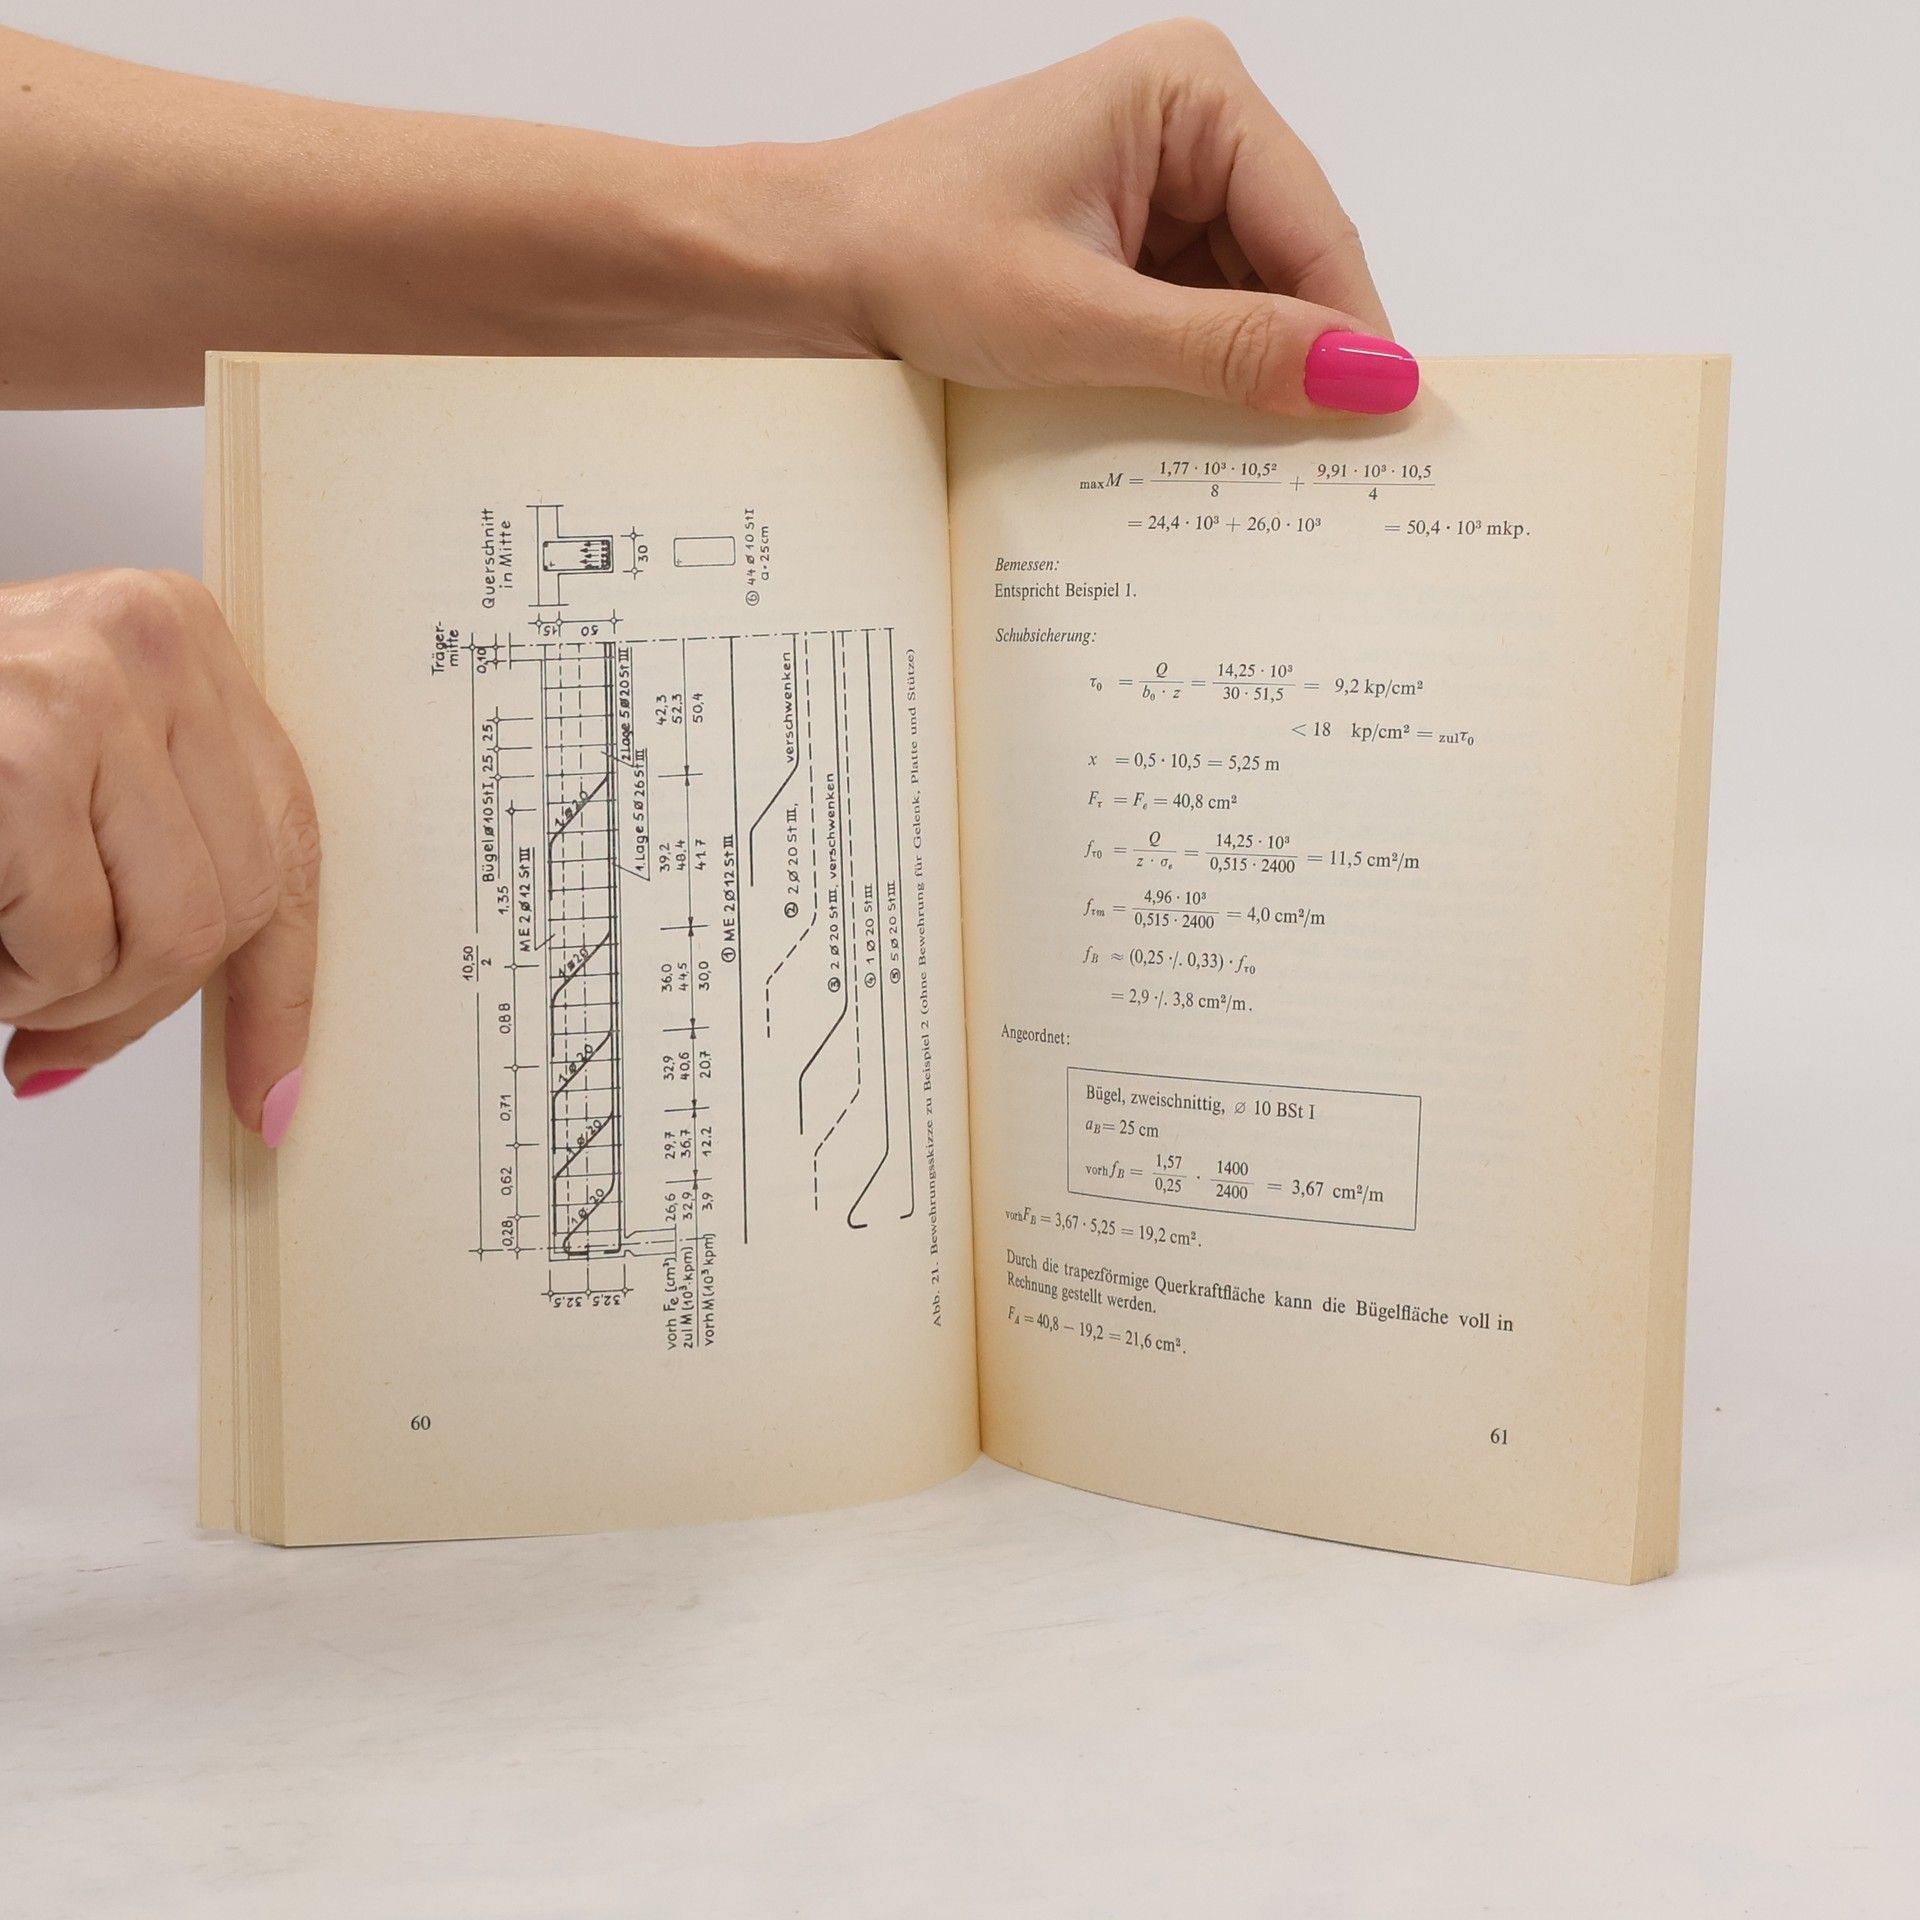 Träger-
mitte
Querschnitt
in Mitte
10,50
2
0,10
Bügel ø 10 St I
25
25
1,35
0,88
0,71
0,62
0,28
ME 2 ø 12 St III
15
50
30
32,5
32,5
2 Lage 5 ø 20 St III
1. Lage 5 ø 26 St III
vorh Fe [cm²] 26,6 29,7 32,9 36,0 39,2 42,3
zul M [10³·kpm] 32,9 36,7 40,6 44,5 48,4 52,3
vorh M [10³ kpm] 3,9 12,2 20,7 30,0 41,7 50,4
① ME 2 ø 12 St III
② 2 ø 20 St III, verschwenken
③ 2 ø 20 St III, verschwenken
④ 1 ø 20 St III
⑤ 5 ø 20 St III
⑥ 44 ø 10 St I
a = 25 cm
Abb. 21. Bewehrungsskizze zu Beispiel 2 (ohne Bewehrung für Gelenk, Platte und Stütze)
60
max M = 1,77 · 10³ · 10,5² / 8 + 9,91 · 10³ · 10,5 / 4
= 24,4 · 10³ + 26,0 · 10³ = 50,4 · 10³ mkp.
Bemessen:
Entspricht Beispiel 1.
Schubsicherung:
τ₀ = Q / b₀ · z = 14,25 · 10³ / 30 · 51,5 = 9,2 kp/cm²
< 18 kp/cm² = zul τ₀
x = 0,5 · 10,5 = 5,25 m
Fτ = Fe = 40,8 cm²
fτ0 = Q / z · σe = 14,25 · 10³ / 0,515 · 2400 = 11,5 cm²/m
fτm = 4,96 · 10³ / 0,515 · 2400 = 4,0 cm²/m
fB ≈ (0,25 ·/. 0,33) · fτ0
= 2,9 ·/. 3,8 cm²/m.
Angeordnet:
Bügel, zweischnittig, ⌀ 10 BSt I
aB = 25 cm
vorh fB = 1,57 / 0,25 · 1400 / 2400 = 3,67 cm²/m
vorh FB = 3,67 · 5,25 = 19,2 cm².
Durch die trapezförmige Querkraftfläche kann die Bügelfläche voll in
Rechnung gestellt werden.
FA = 40,8 − 19,2 = 21,6 cm².
61